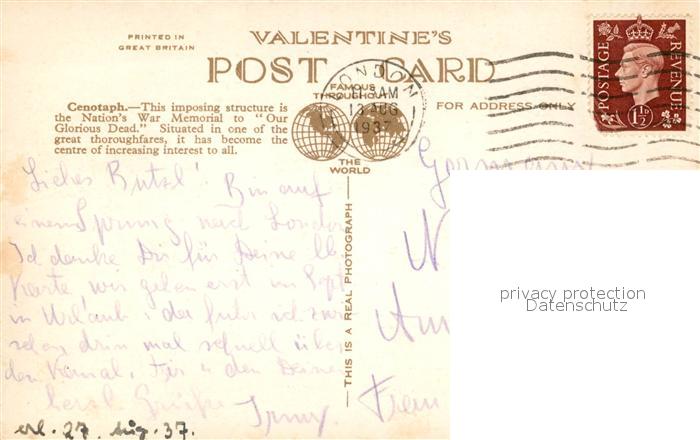 PRINTED IN
GREAT BRITAIN
VALENTINE'S
POST CARD
FAMOUS
THROUGHOUT
THE
WORLD
FOR ADDRESS ONLY
LONDON
11 AM
13 AUG
1937
POSTAGE
REVENUE
1½
Cenotaph.—This imposing structure is
the Nation's War Memorial to "Our
Glorious Dead." Situated in one of the
great thoroughfares, it has become the
centre of increasing interest to all.
THIS IS A REAL PHOTOGRAPH
Liebes Butzl! Bin auf
einen Sprung nach London
Ich danke Dir für Deine lb
Karte wir gehen erst im Sept
in Urlaub, da fuhr ich
schon mal schnell über
den Kanal. Für den Deinen
herzl. Grüße
erl. 27. Aug. 37.
Germany
privacy protection
Datenschutz